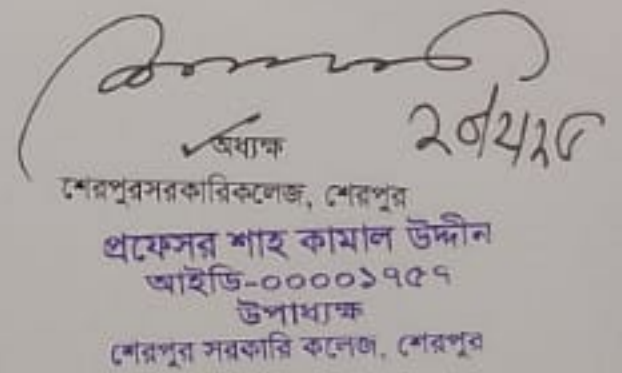 অধ্যক্ষ
শেরপুরসরকারিকলেজ, শেরপুর
প্রফেসর শাহ কামাল উদ্দীন
আইডি-০০০০১৭৫৭
উপাধ্যক্ষ
শেরপুর সরকারি কলেজ, শেরপুর